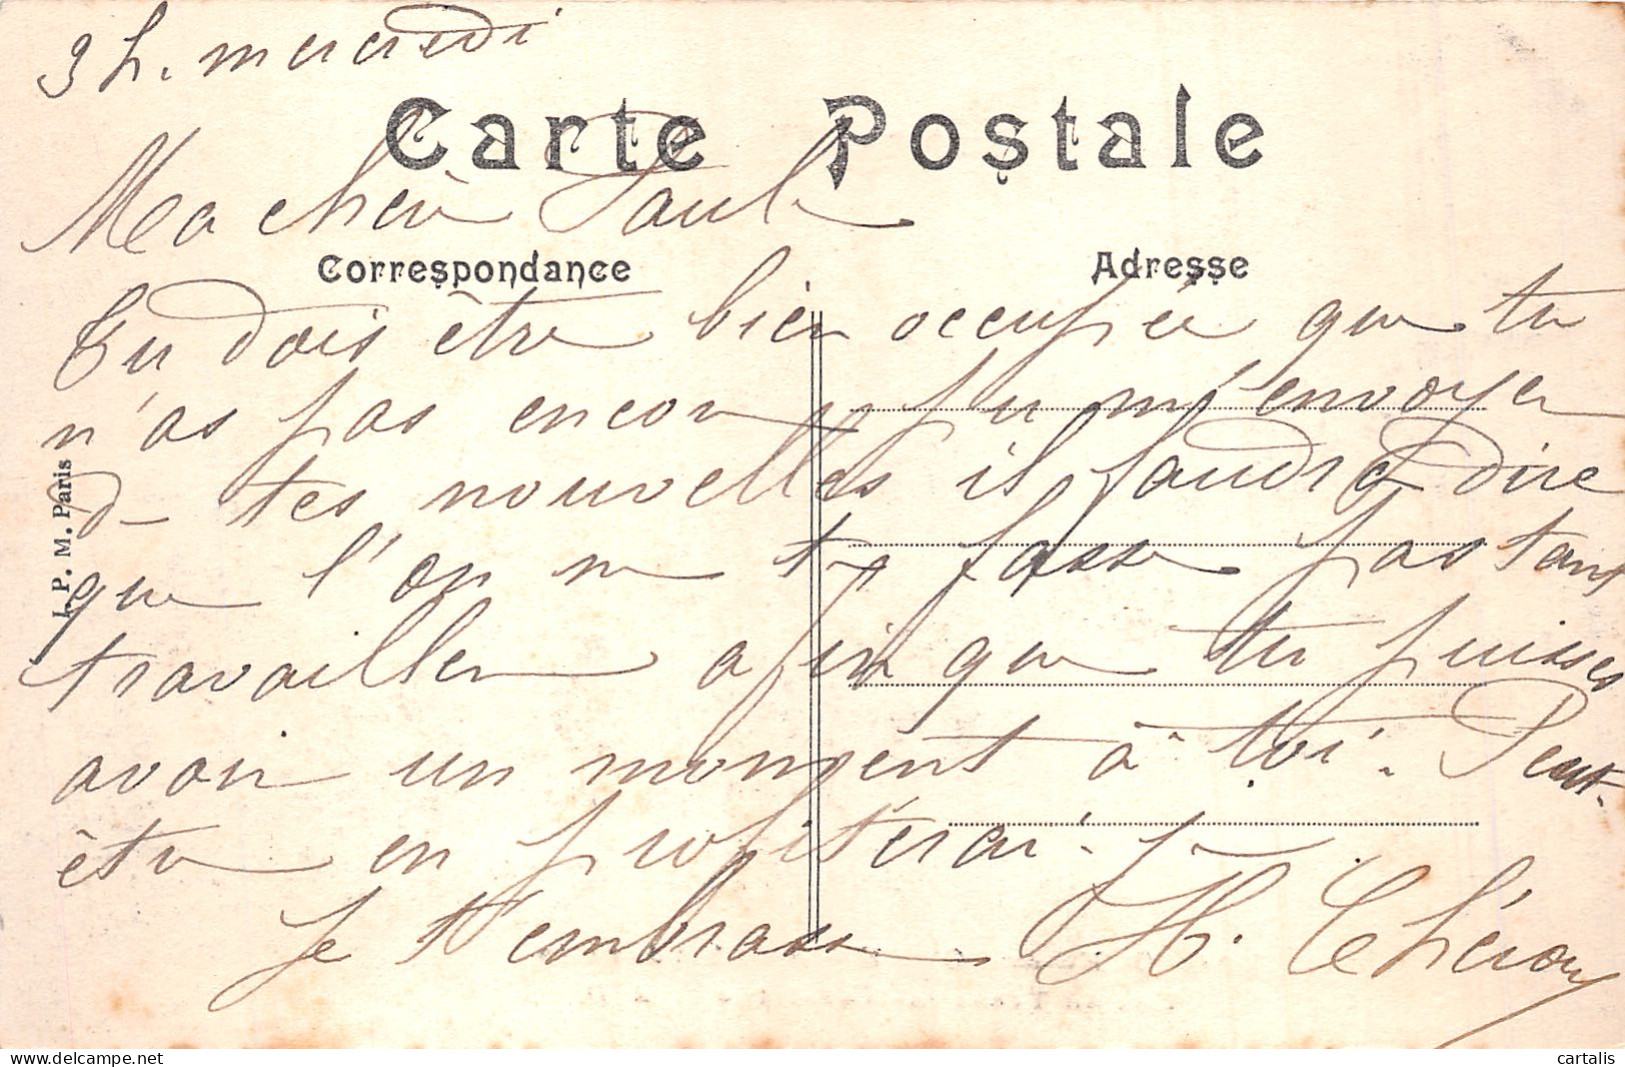 3 h. mercredi
Carte Postale
Ma chère Paule
Correspondance
Adresse
Tu dois être bien occupée que tu
n'as pas encore pu m'envoyer
de tes nouvelles il faudra dire
que l'on ne te fasse pas tant
travailler afin que tu puisses
avoir un moment à toi. Peut-
être en profiterai-je
Je t'embrasse H. Théron
I. P. M. Paris
cartalis